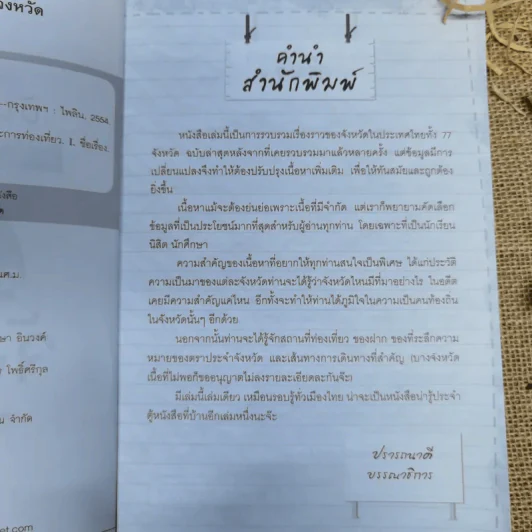 วงหวัด
--กรุงเทพฯ : ไพลิน, 2554.
ะการท่องเที่ยว. I. ชื่อเรื่อง.
งสือ
ด
นศ.ม.
ษา อินวงศ์
ร โพธิ์ศรีกุล
น จำกัด
et.com
คำนำ
สำนักพิมพ์
หนังสือเล่มนี้เป็นการรวบรวมเรื่องราวของจังหวัดในประเทศไทยทั้ง 77
จังหวัด ฉบับล่าสุดหลังจากที่เคยรวบรวมมาแล้วหลายครั้ง แต่ข้อมูลมีการ
เปลี่ยนแปลงจึงทำให้ต้องปรับปรุงเนื้อหาเพิ่มเติม เพื่อให้ทันสมัยและถูกต้อง
ยิ่งขึ้น
เนื้อหาแม้จะต้องย่นย่อเพราะเนื้อที่มีจำกัด แต่เราก็พยายามคัดเลือก
ข้อมูลที่เป็นประโยชน์มากที่สุดสำหรับผู้อ่านทุกท่าน โดยเฉพาะที่เป็นนักเรียน
นิสิต นักศึกษา
ความสำคัญของเนื้อหาที่อยากให้ทุกท่านสนใจเป็นพิเศษ ได้แก่ประวัติ
ความเป็นมาของแต่ละจังหวัดท่านจะได้รู้ว่าจังหวัดไหนมีที่มาอย่างไร ในอดีต
เคยมีความสำคัญแค่ไหน อีกทั้งจะทำให้ท่านได้ภูมิใจในความเป็นคนท้องถิ่น
ในจังหวัดนั้นๆ อีกด้วย
นอกจากนั้นท่านจะได้รู้จักสถานที่ท่องเที่ยว ของฝาก ของที่ระลึกความ
หมายของตราประจำจังหวัด และเส้นทางการเดินทางที่สำคัญ (บางจังหวัด
เนื้อที่ไม่พอก็ขออนุญาตไม่ลงรายละเอียดละกันจ๊ะ)
มีเล่มนี้เล่มเดียว เหมือนรอบรู้ทั่วเมืองไทย น่าจะเป็นหนังสือน่ารู้ประจำ
ตู้หนังสือที่บ้านอีกเล่มหนึ่งนะจ๊ะ
ปรารถนาดี
บรรณาธิการ